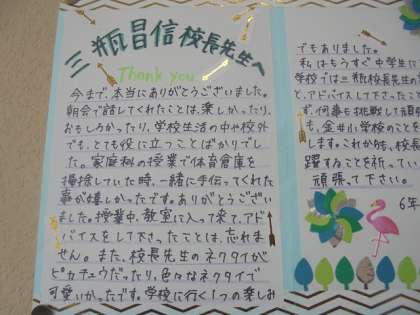 三瓶昌信校長先生へ
Thank you
今まで、本当にありがとうございました。
朝会で話してくれたことは、楽しかったり、
おもしろかったり、学校生活の中や校外
でも、とても役に立つことばかりでし
た。家庭科の授業で体育倉庫を
掃除していた時、一緒に手伝ってくれた
事が嬉しかったです。ありがとうござい
ました。授業中、教室に入って来て、アド
バイスをして下さったことは、忘れま
せん。また、校長先生のネクタイが
ピカチュウだったり、色々なネクタイで
可愛いかったです。学校に行く1つの楽しみ
でもありました。
私はもうすぐ中学生に
学校では三瓶校長先生の
と、アドバイスして下さったこと
ず、何事も挑戦して頑
も、金井小学校のことを
します。これから先、校長
躍することを祈ってい
頑張って下さい。
6年